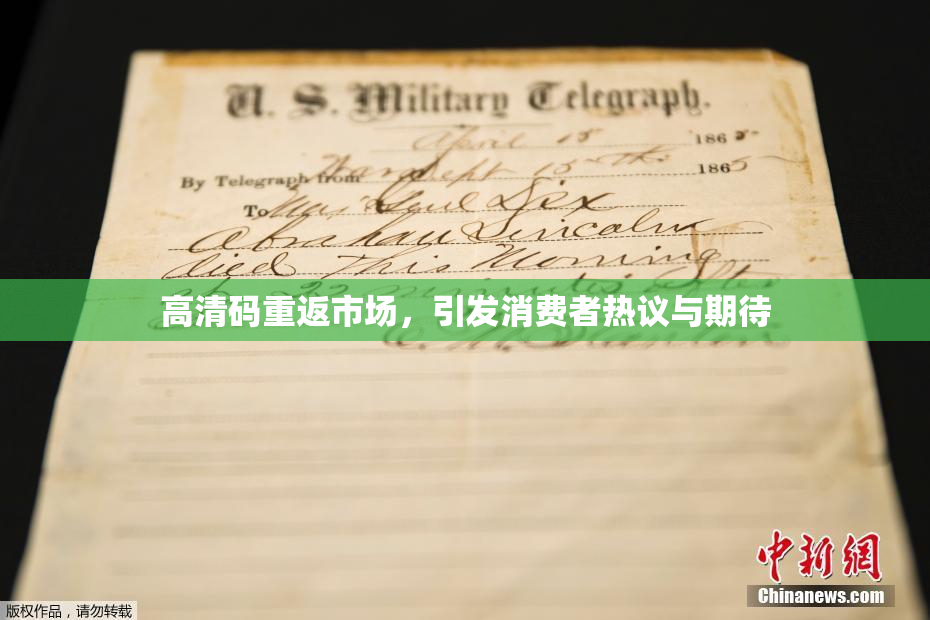 U. S. Military Telegraph.
April 15 1865
By Telegraph from War Dept 15th 1865
To Maj Genl Dix
Abraham Lincoln
died This Morning
at 22 minutes after
高清码重返市场，引发消费者热议与期待
E. M. Stanton
中新网
Chinanews.com
版权作品，请勿转载